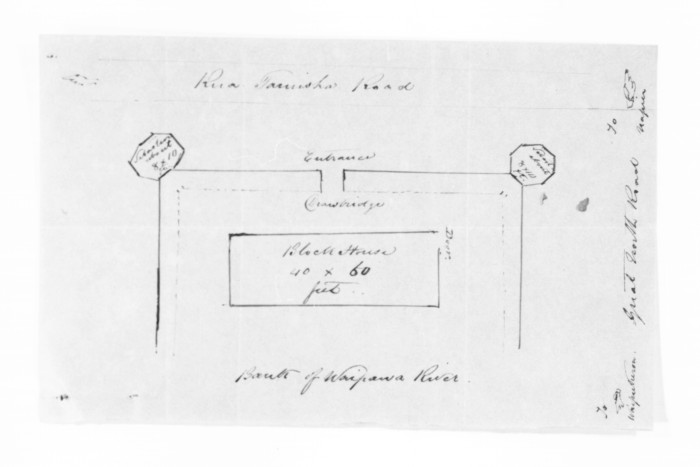 Rua Taniwha Road
Entrance
Drawbridge
Block House
40 x 60
feet
Door
Bank of Waipawa River.
Great North Road
To
Napier
To
Waipukurau.
about
about